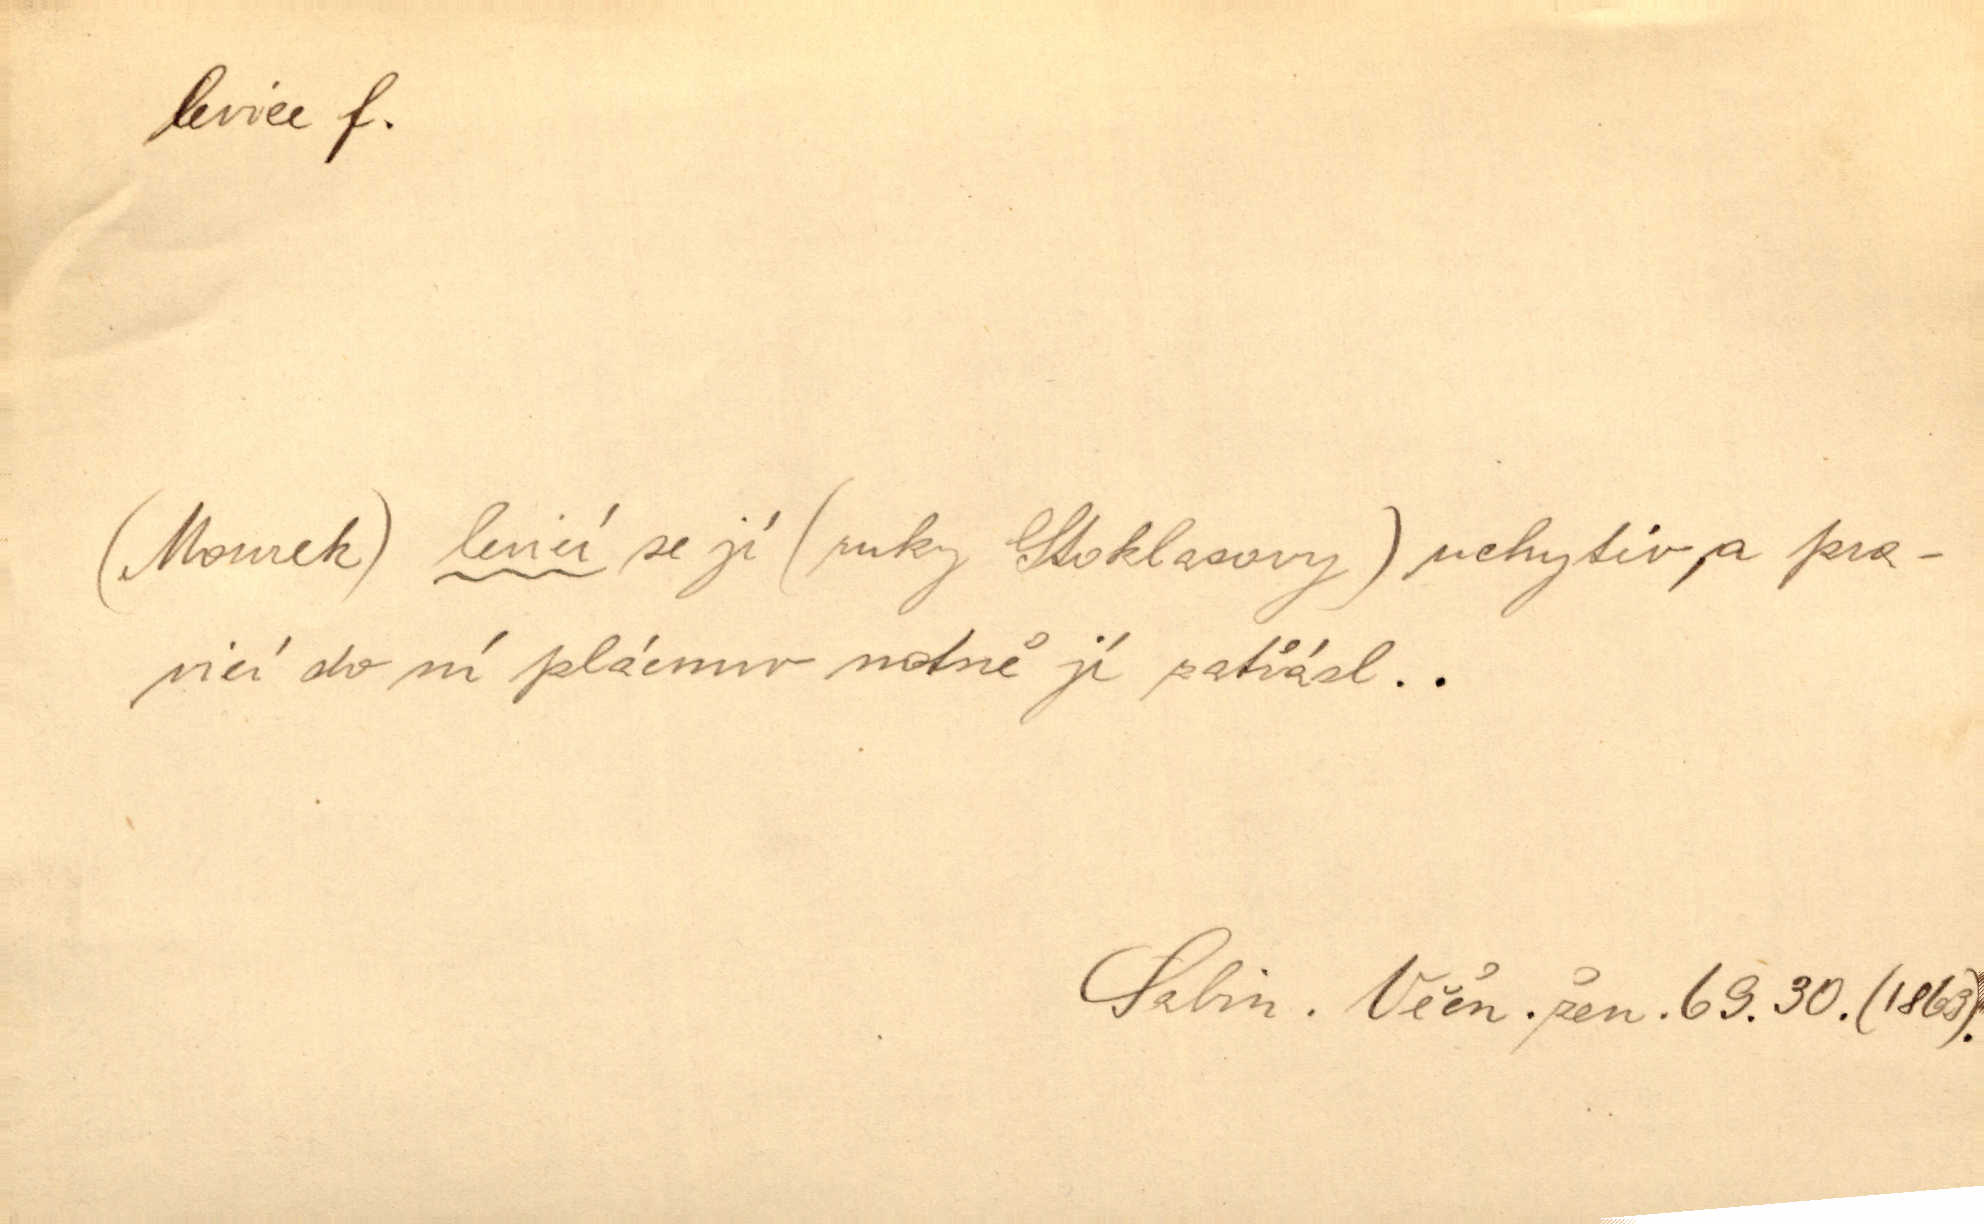 levice f.
(Mourek) levicí se jí (ruky Stoklasovy) uchytiv, a pra-
vicí do ní plácnuv notně jí zatřásl..
Sabin. Věčn. žen. 69. 30. (1863).